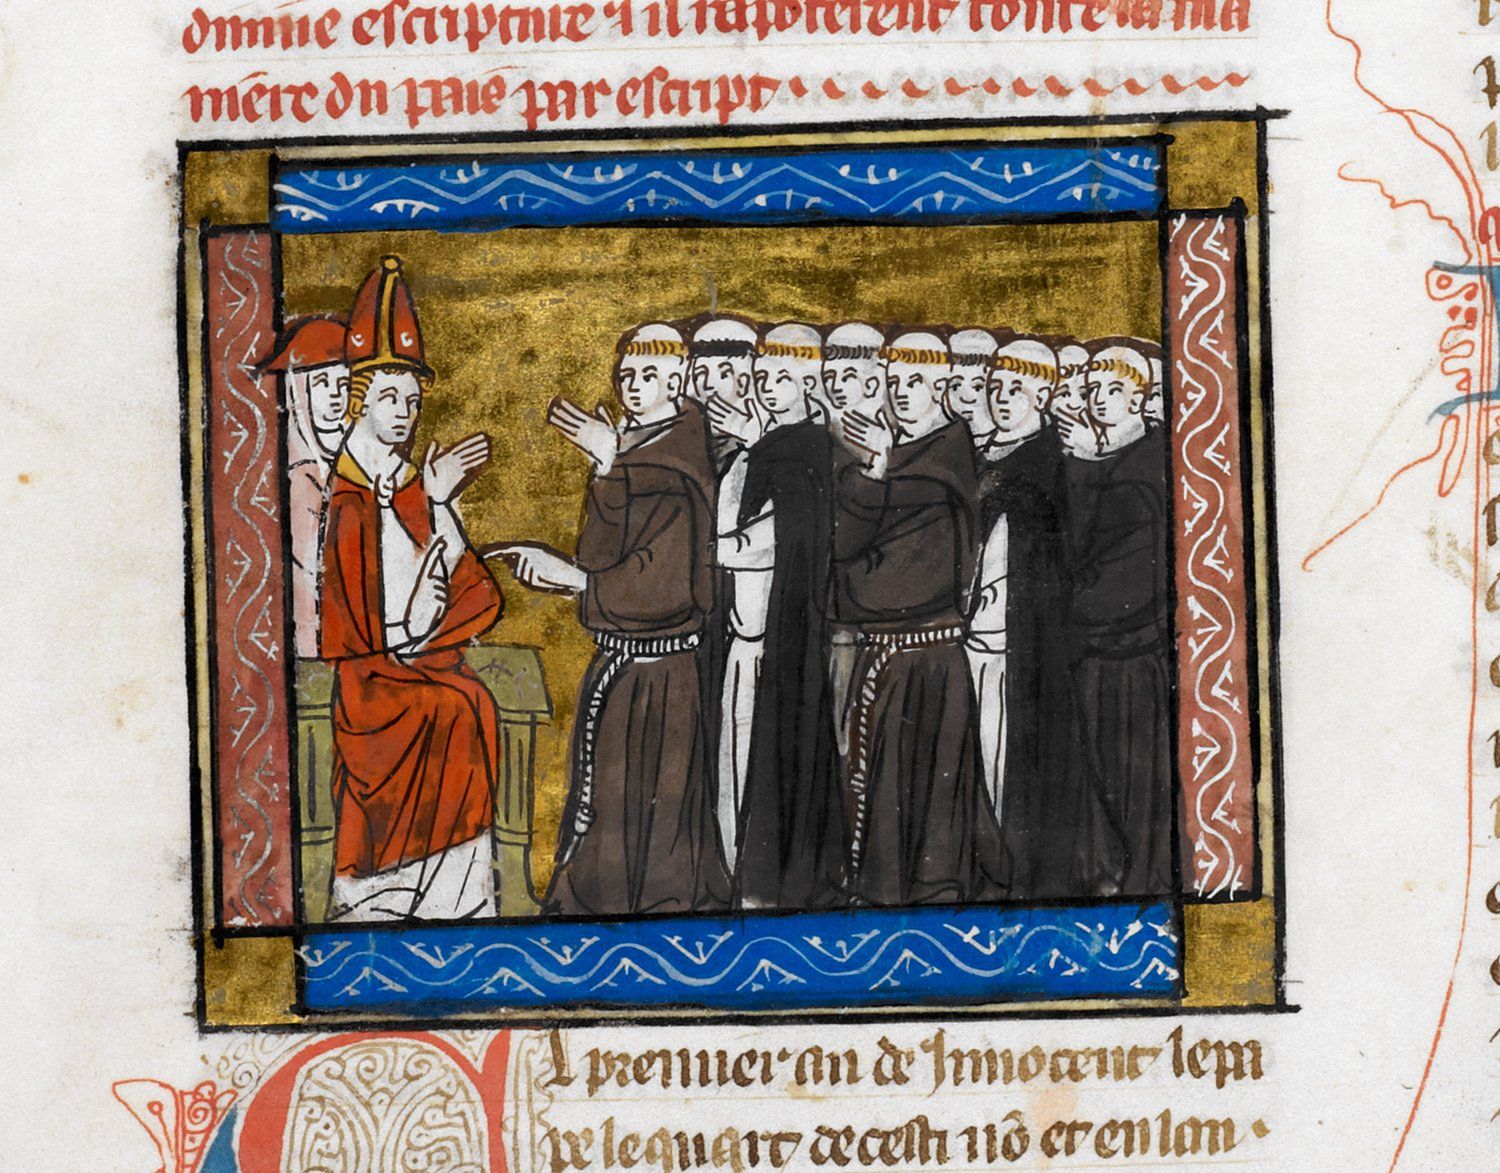 diuine escripture ⁊ il raporterent toute la ma
niere du pais par escript
El premier an de Innocent le pa
pe le quart de cesti nō et en lan